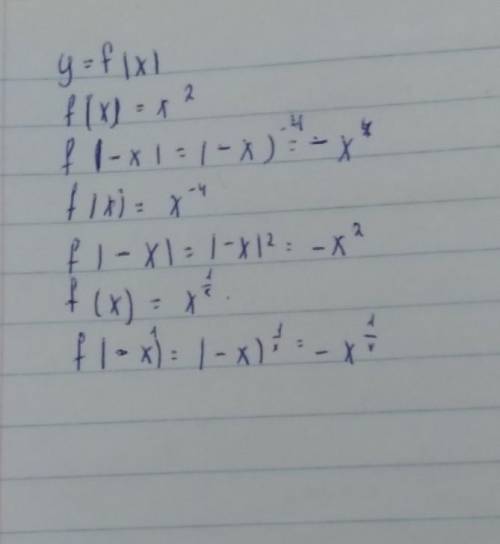 y = f(x)
f(x) = x²
f(-x) = (-x)⁻⁴ = -x⁴
f(x) = x⁻⁴
f(-x) = (-x)² = -x²
f(x) = x^
f(-x) = (-x)^ = -x^